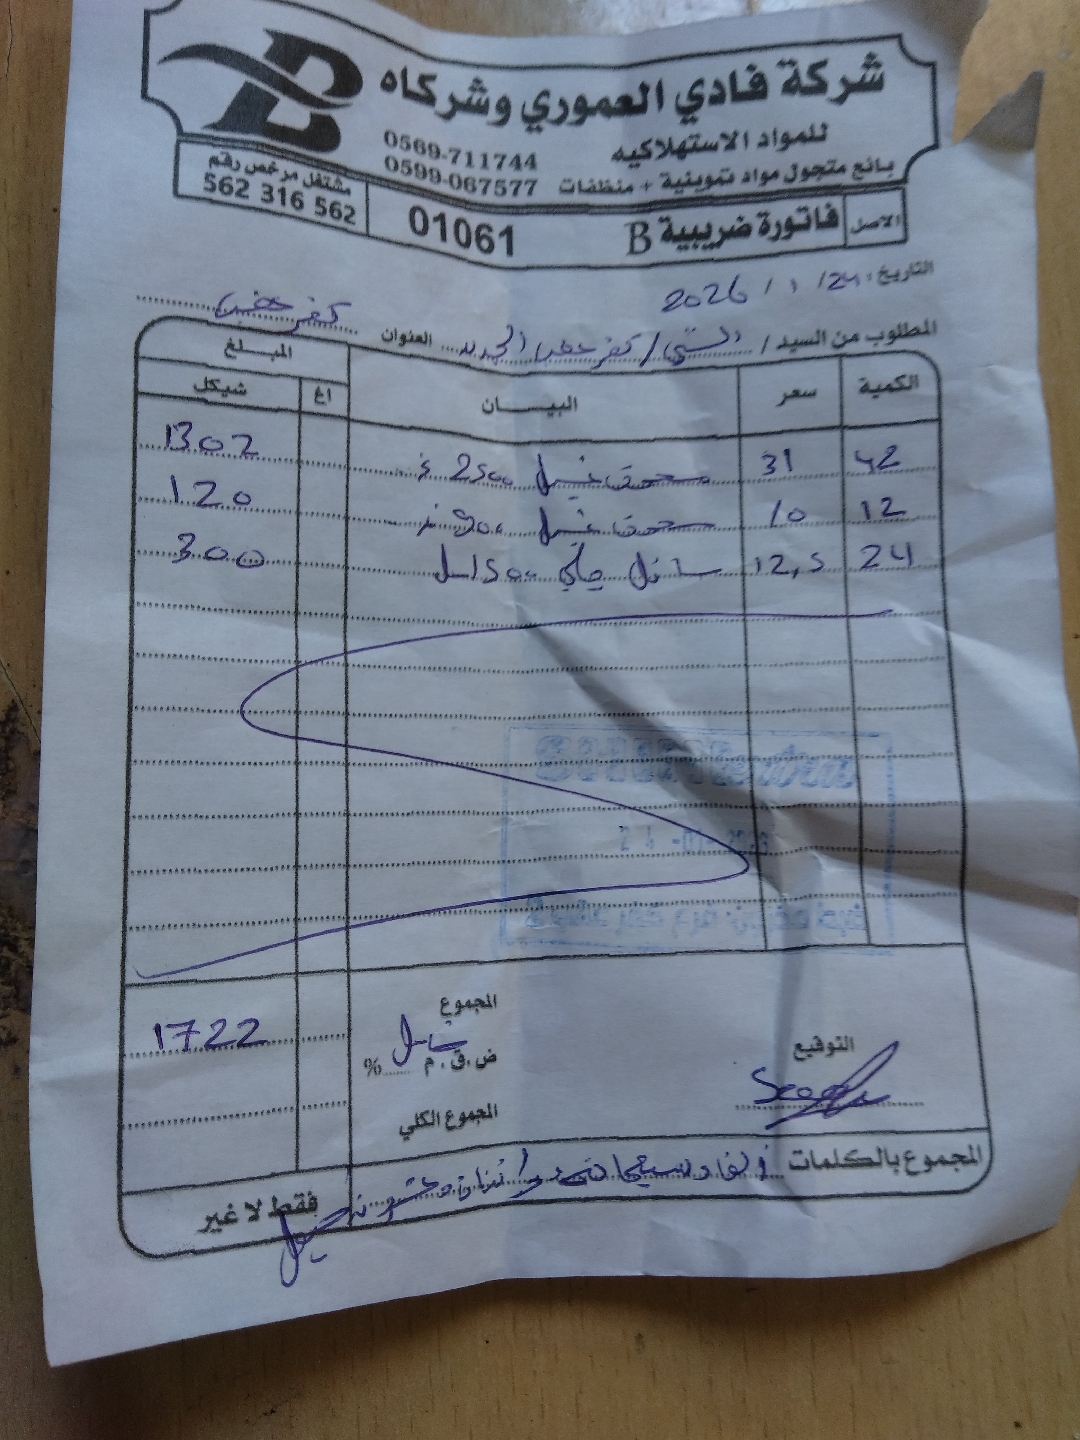 شركة فادي العموري وشركاه
للمواد الاستهلاكيه
0569-711744
بائع متجول مواد تموينية + منظفات
0599-067577
مشتغل مرخص رقم
562 316 562
الاصل
فاتورة ضريبية B
01061
التاريخ: 24/ 1 / 2026
المطلوب من السيد / السني / كفر عقب الجديد العنوان كفر عقب
الكمية سعر البيـــان المبـــلغ
اغ شيكل
42 31 مسحوق غسيل 2500 غ 1302
12 10 مسحوق غسيل 900 غ 120
24 12,5 سائل جلي 1500 مل 300
المجموع
1722
ض.ق.م شامل %
المجموع الكلي
التوقيع
المجموع بالكلمات الف وسبعمائة واثنان وعشرون شيكل
فقط لا غير